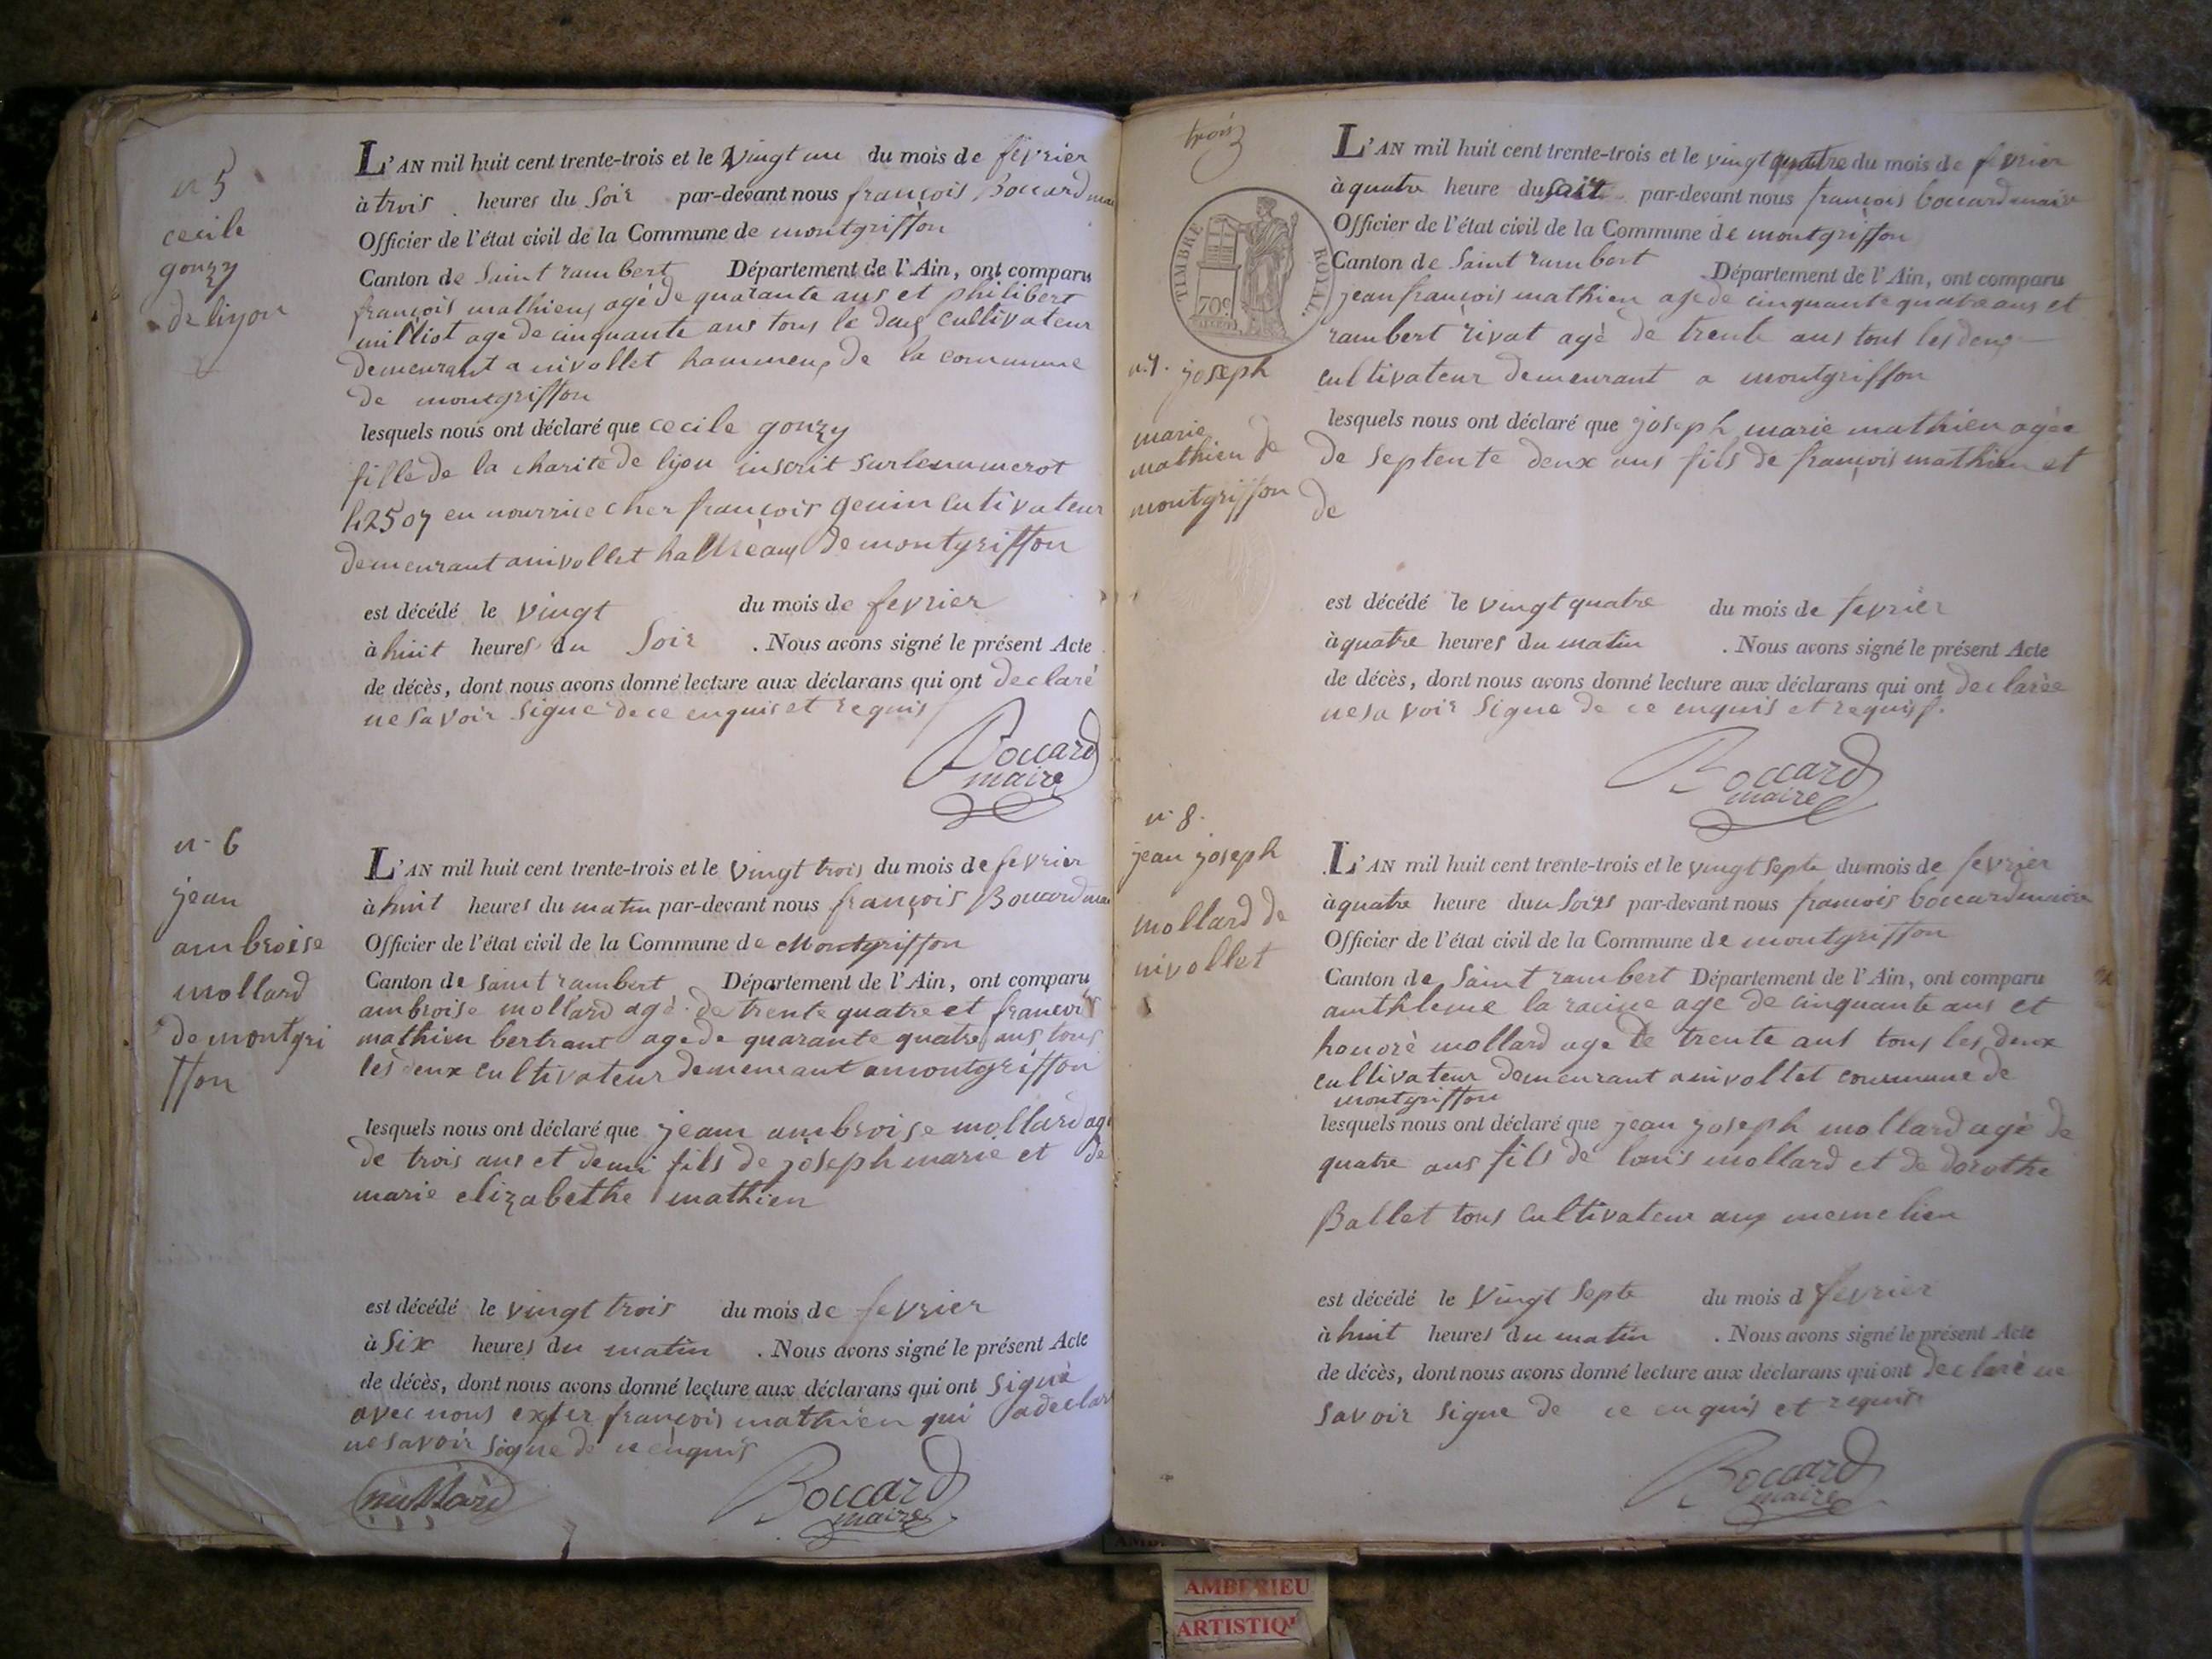 n 5
cecile
gonzy
de liyon
L'AN mil huit cent trente-trois et le vingt un du mois de fevrier
à trois heures du Soir par-devant nous françois Boccard mai
Officier de l'état civil de la Commune de montgriffon
Canton de Saint rambert Département de l'Ain, ont comparu
françois mathieu agé de quarante ans et philibert
milliot age de cinquante ans tous le deux cultivateur
demeurant a nivollet hammeux de la commune
de montgriffon
lesquels nous ont déclaré que cecile gonzy
fille de la charite de lijon inscrit sur le numerot
42507 en nourrice cher françois genin cutivateur
demeurant a nivollet hammeaux de montgriffon
est décédé le vingt du mois de fevrier
à huit heures du Soir . Nous avons signé le présent Acte
de décès, dont nous avons donné lecture aux déclarans qui ont declaré
ne savoir signe de ce enquis et requis
Boccard
maire
n. 6
jean
ambroise
mollard
de montgri
ffon
L'AN mil huit cent trente-trois et le vingt trois du mois de fevrier
à huit heures du matin par-devant nous françois Boccard mai
Officier de l'état civil de la Commune de Montgriffon
Canton de saint rambert Département de l'Ain, ont comparu
ambroise mollard agé de trente quatre et francois
mathieu bertrant age de quarante quatre ans tous
les deux cultivateur demeurant a montgriffon
lesquels nous ont déclaré que jean ambroise mollard agé
de trois ans et demi fils de joseph marie et de
marie elizabethe mathieu
est décédé le vingt trois du mois de fevrier
à Six heures du matin . Nous avons signé le présent Acte
de décès, dont nous avons donné lecture aux déclarans qui ont signé
avec nous exter françois mathieu qui a declar
ne savoir signe de ce enquis
mollard
Boccard
maire
trois
TIMBRE ROYAL.
70c
n.7. joseph
marie
mathieu de
montgriffon
L'AN mil huit cent trente-trois et le vingt quatre du mois de fevrier
à quatre heure du soit par-devant nous françois boccard maire
Officier de l'état civil de la Commune de montgriffon
Canton de Saint rambert Département de l'Ain, ont comparu
jean françois mathieu age de cinquante quatre ans et
rambert rivat agè de trente ans tous les deux
cultivateur demeurant a montgriffon
lesquels nous ont déclaré que joseph marie mathieu agée
de septente deux ans fils de françois mathieu et
de
est décédé le vingt quatre du mois de fevrier
à quatre heures du matin . Nous avons signé le présent Acte
de décès, dont nous avons donné lecture aux déclarans qui ont declarée
ne sa voir Signe de ce enquis et requis.
Boccard
maire
n. 8.
jean joseph
mollard de
nivollet
L'AN mil huit cent trente-trois et le vingt septe du mois de fevrier
à quatre heure du Soirs par-devant nous francois boccard maire
Officier de l'état civil de la Commune de montgriffon
Canton de Saint rambert Département de l'Ain, ont comparu
amthleme la racine age de cinquante ans et
honorè mollard age de trente ans tous les deux
cultivateur demeurant a nivollet commune de
montgriffon
lesquels nous ont déclaré que jean joseph mollard agè de
quatre ans fils de louis mollard et de dorothe
Ballet tous cultivateur aux meme lieu
est décédé le Vingt Septe du mois d fevrier
à huit heures du matin . Nous avons signé le présent Acte
de décès, dont nous avons donné lecture aux déclarans qui ont declaré ne
savoir signe de ce enquis et requis
Boccard
maire
AMBERIEU
ARTISTIQ